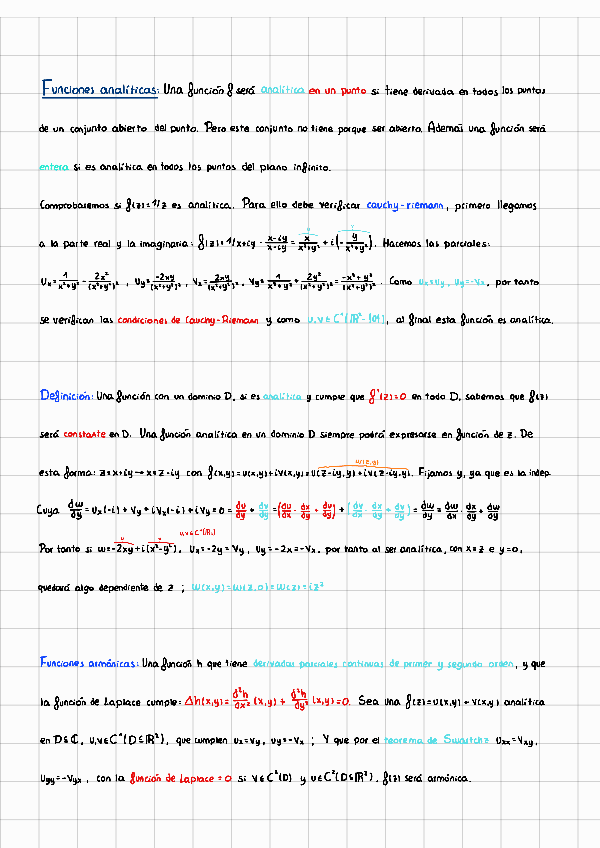 Funciones analíticas: Una función f será analítica en un punto si tiene derivada en todos los puntos
de un conjunto abierto del punto. Pero este conjunto no tiene porque ser abierto. Además una función será
entera si es analítica en todos los puntos del plano infinito.
Comprobaremos si f(z)=1/z es analítica. Para ello debe verificar cauchy-riemann, primero llegamos
a la parte real y la imaginaria: f(z)=1/x+iy · x-iy/x-iy = x/x²+y² + i(- y/x²+y²). Hacemos las parciales:
Ux= 1/x²+y² - 2x²/(x²+y²)², Uy= -2xy/(x²+y²)², Vx= 2xy/(x²+y²)², Vy= 1/x²+y² + 2y²/(x²+y²)² = -x²+y²/(x²+y²)². Como Ux=Vy, Uy=-Vx, por tanto
se verifican las condiciones de Cauchy-Riemann y como U,V∈C¹(ℝ²-{0}), al final esta función es analítica.
Definición: Una función con un dominio D, si es analítica y cumple que f'(z)=0 en todo D, sabemos que f(z)
será constante en D. Una función analítica en un dominio D siempre podrá expresarse en función de z. De
esta forma: z=x+iy → x=z-iy con f(x,y)=U(x,y)+iV(x,y)=U(z-iy,y)+iV(z-iy,y). Fijamos y, ya que es la indep.
Cuya dw/dy = Ux(-i) + Vy + iVx(-i) + iVy = 0 = du/dy + dv/dy = (du/dx · dx/dy + du/dy) + (dv/dx · dx/dy + dv/dy) = dw/dy = dw/dx · dx/dy + dw/dy
Por tanto si w=-2xy+i(x²-y²), Ux=-2y=Vy, Uy=-2x=-Vx, por tanto al ser analítica, con x=z e y=0,
quedará algo dependiente de z ; W(x,y)=W(z,0)=W(z)=iz²
Funciones armónicas: Una función h que tiene derivadas parciales continuas de primer y segundo orden, y que
la función de Laplace cumple: Δh(x,y)= d²h/dx² (x,y) + d²h/dy² (x,y)=0. Sea una f(z)=U(x,y)+V(x,y) analítica
en D⊆ℂ, U,V∈C²(D⊆ℝ²), que cumplen Ux=Vy, Uy=-Vx ; Y que por el teorema de Swartchz Uxx=Vxy,
Uyy=-Vyx, con la función de Laplace = 0 si V∈C²(D) y U∈C²(D⊆ℝ²). f(z) será armónica.